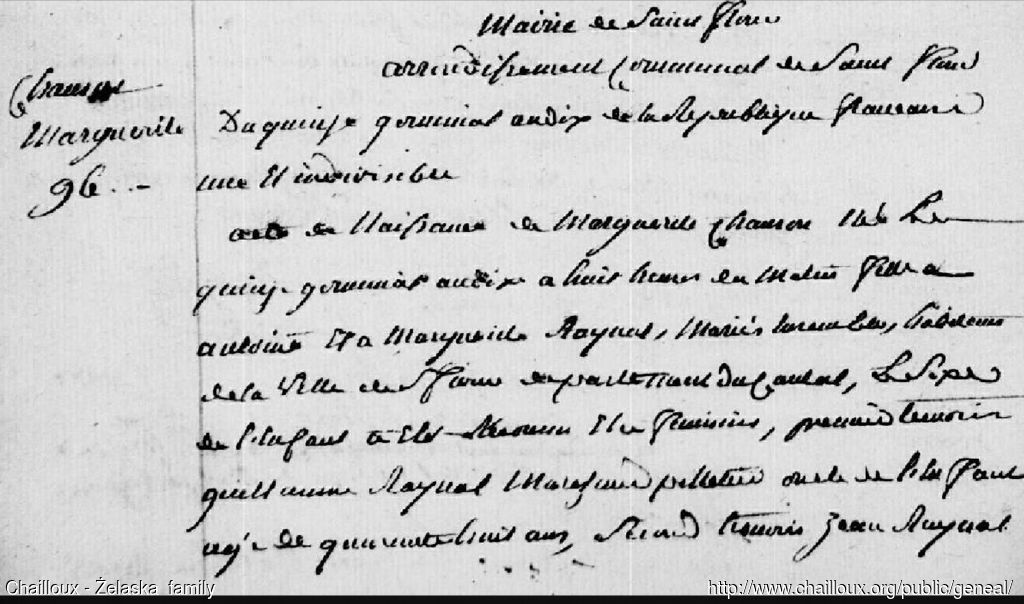 Mairie de Saint flour
arrondissement Communal de Saint flour
Chanson
Marguerite
96
Du quinze germinal an dix de la Republique francaise
une et indivisible
acte de Naissance de Marguerite Chanson née Le
quinze germinal an dix a huit heures du Matin fille a
antoine Et a Marguerite Raynal, Mariés Ensembles, habitans
de la Ville de St flour departement Du Cantal, Le Sexe
de l'Enfant a Eté Reconnu Etre feminin, premier temoin
guillaume Raynal Marchand pelletier oncle de l'Enfant
agé de quarante huit ans, Second temoin jean Raynal
Chailloux - Żelaska family
http://www.chailloux.org/public/geneal/